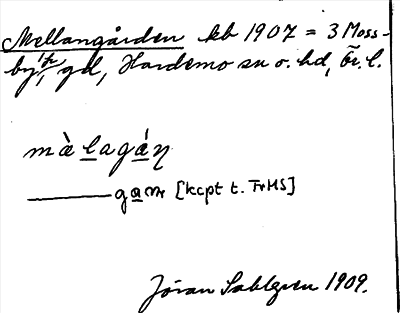 Mellangården kb 1907 = 3 Moss-
by 1/1 gd, Hardemo sn o. hd, Ör. l.
mὰlagáŋ
gam [kcpt t. FrHS]
Jöran Sahlgren 1909.